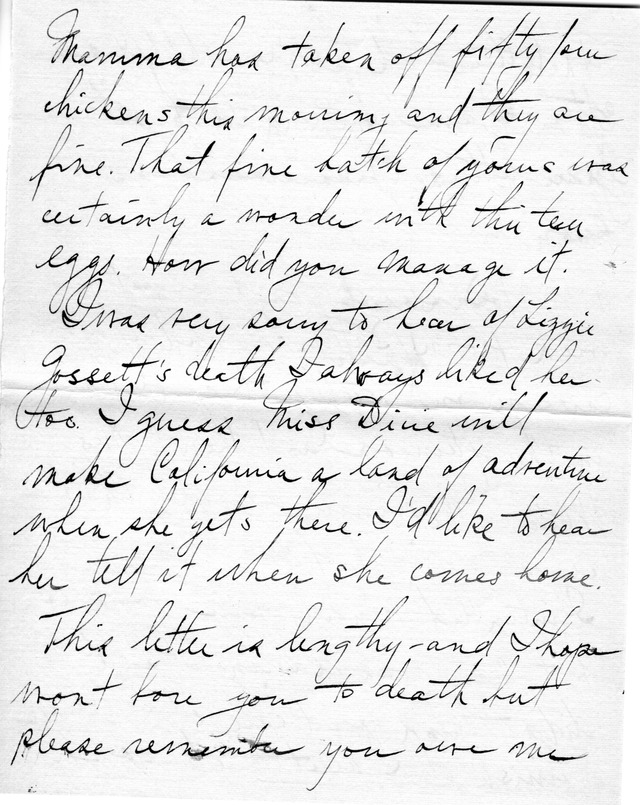 Mamma has taken off fifty four
chickens this morning and they are
fine. That fine hatch of yours was
certainly a wonder with thirteen
eggs. How did you manage it.
I was very sorry to hear of Lizzie
Gossett's death I always liked her
too. I guess Miss Dixie will
make California a land of adventure
when she gets there. I'd like to hear
her tell it when she comes home.
This letter is lengthy - and I hope
wont bore you to death but
please remember you owe me